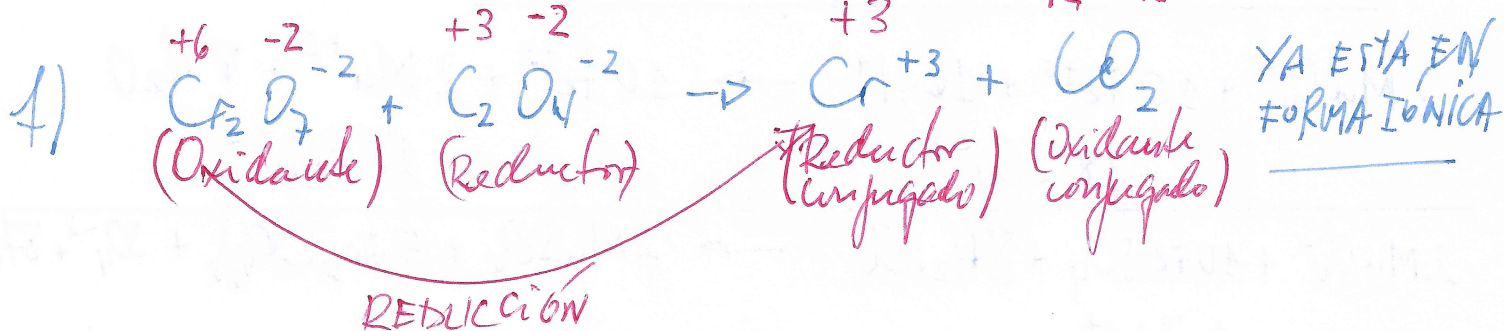 +6 -2 +3 -2 +3
f) Cr₂O₇⁻² + C₂O₄⁻² → Cr⁺³ + CO₂ YA ESTÁ EN
FORMA IÓNICA
(Oxidante) (Reductor) (Reductor conjugado) (Oxidante conjugado)
REDUCCIÓN